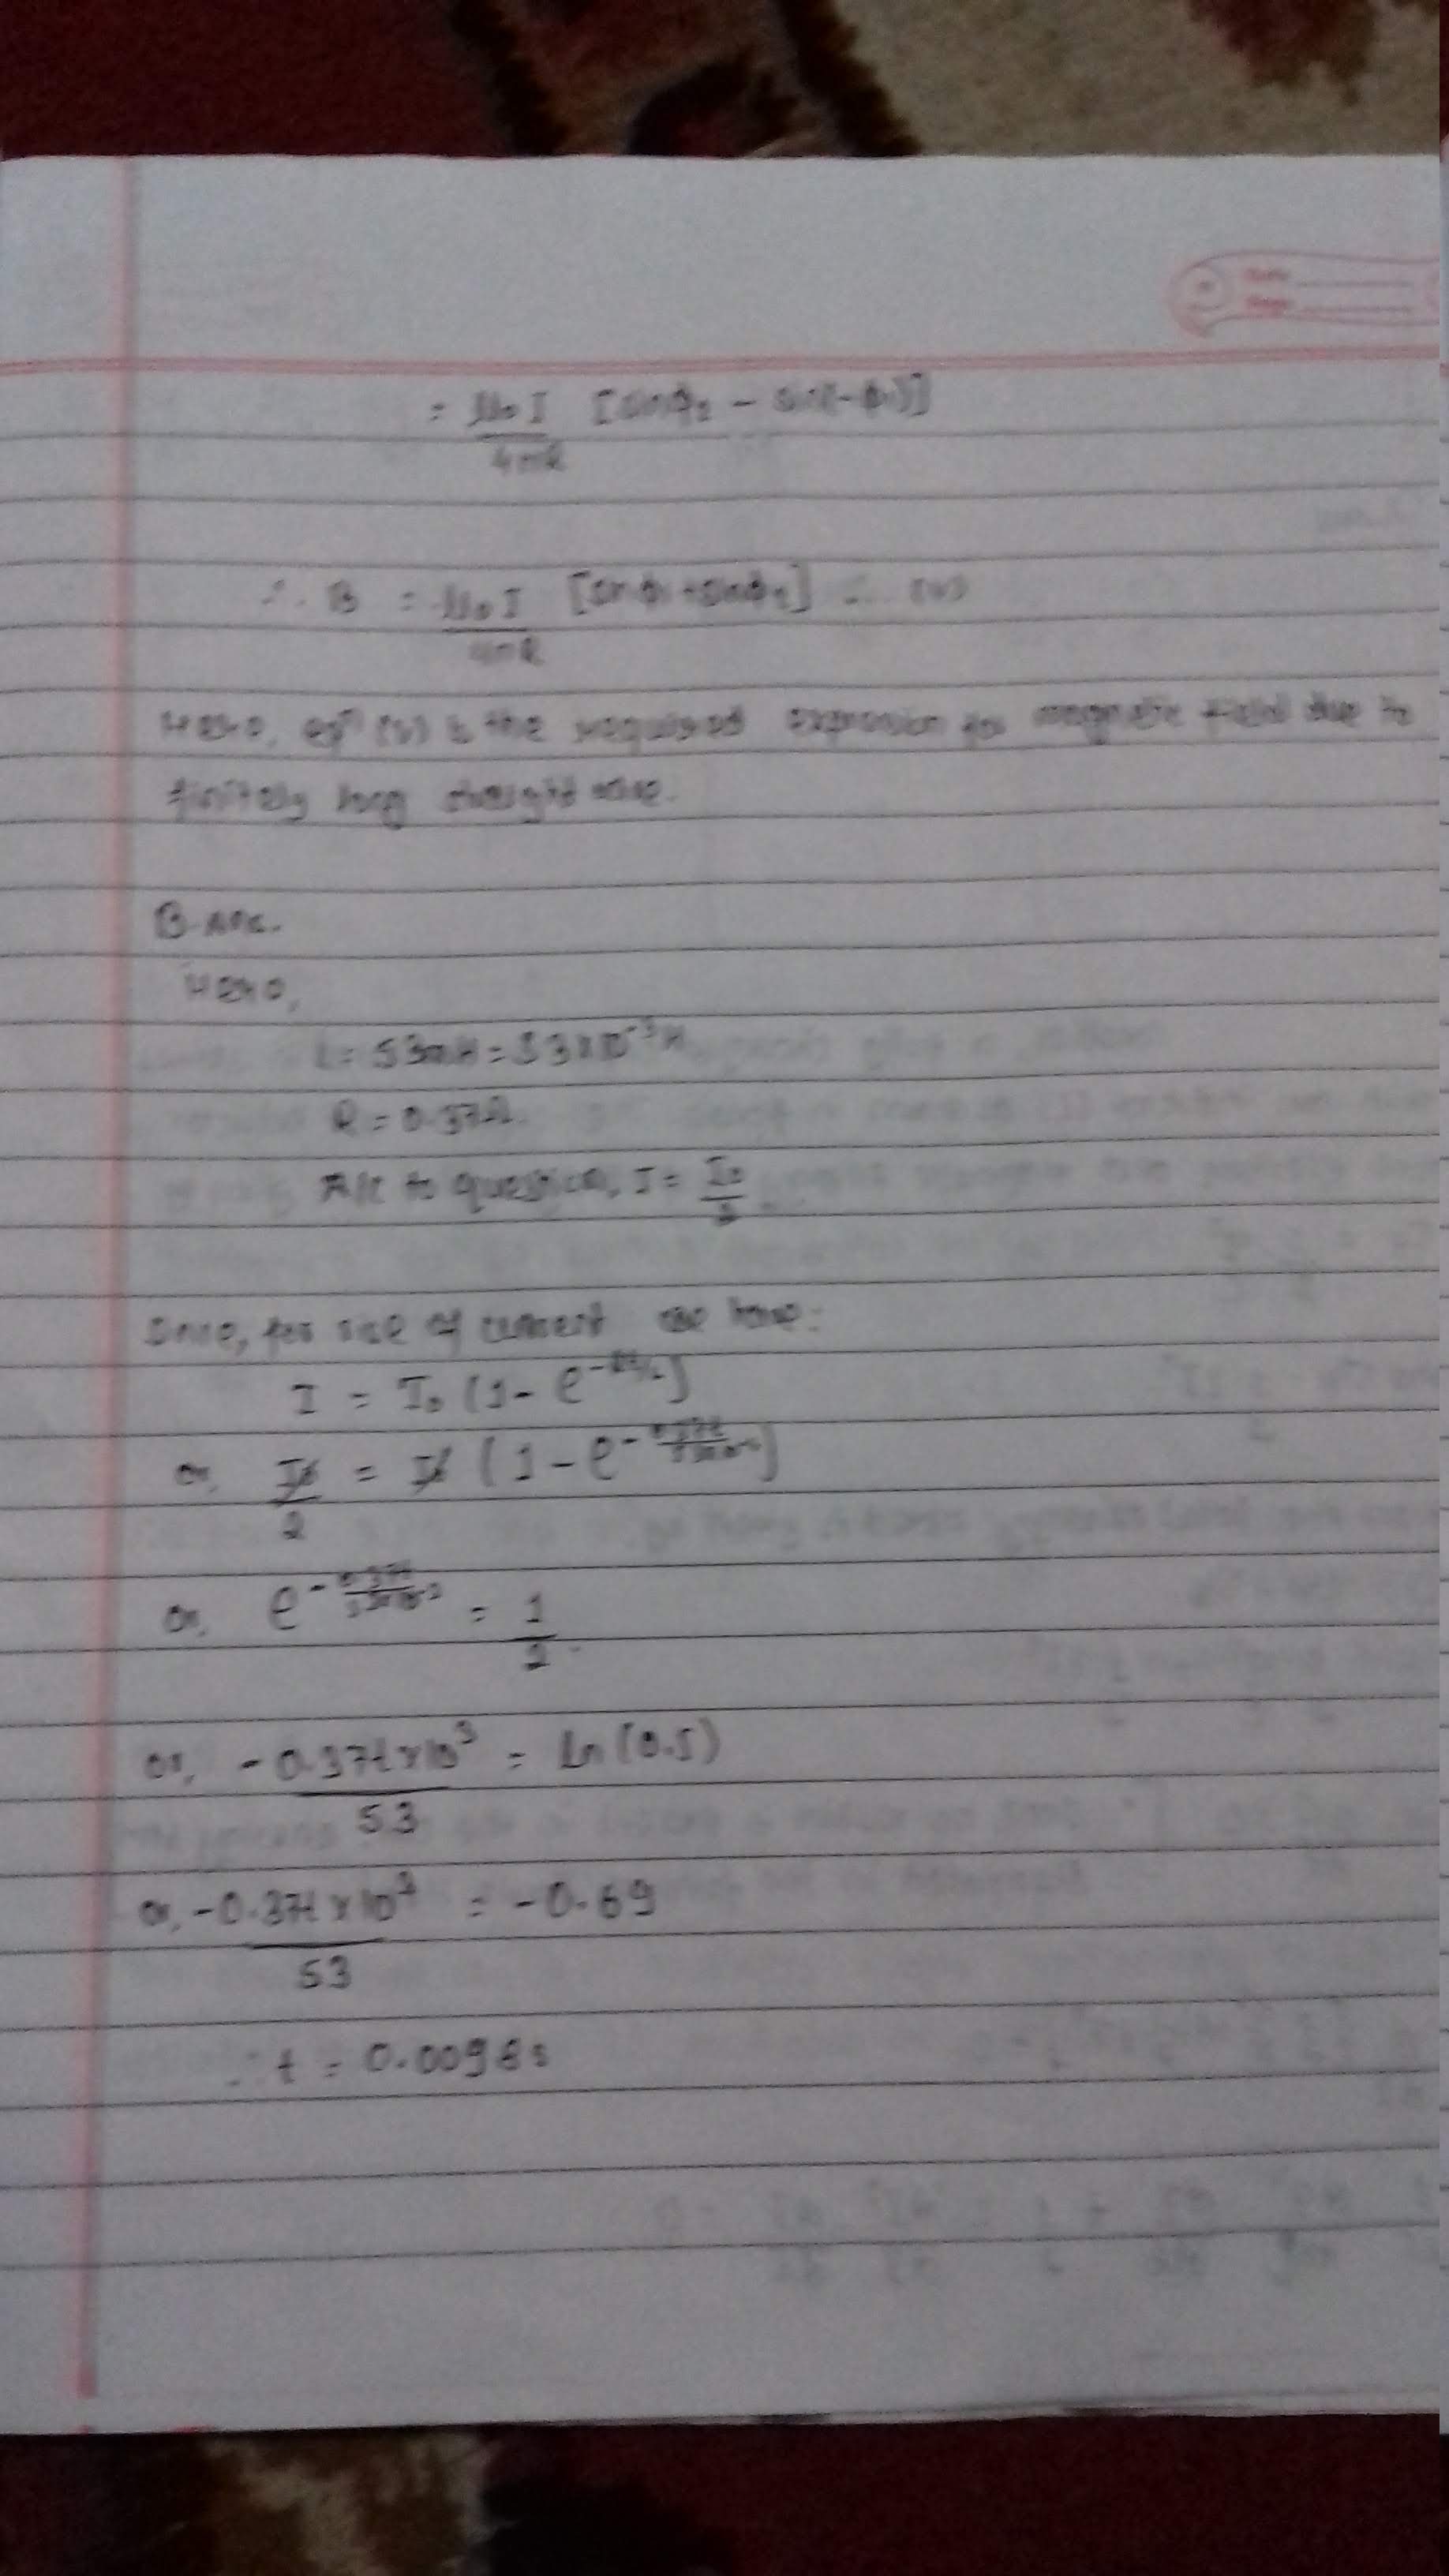 = μ₀I/4πR [sinφ₂ - sin(-φ₁)]
∴ B = μ₀I/4πR [sinφ₁+sinφ₂] ... (v)
Here, eqⁿ (v) is the required expression for magnetic field due to
finitely long straight wire.
8 Ans.
Here,
L = 53mH = 53×10⁻³H
R = 0.37Ω
A/c to question, I = I₀/2
Since, for rise of current we have:
I = I₀ (1 - e^(-Rt/L))
or, I₀/2 = I₀ (1 - e^(-0.37t/53×10⁻³))
or, e^(-0.37t/53×10⁻³) = 1/2
or, -0.37t×10³/53 = ln(0.5)
or, -0.37t×10³/53 = -0.69
∴ t = 0.0098s